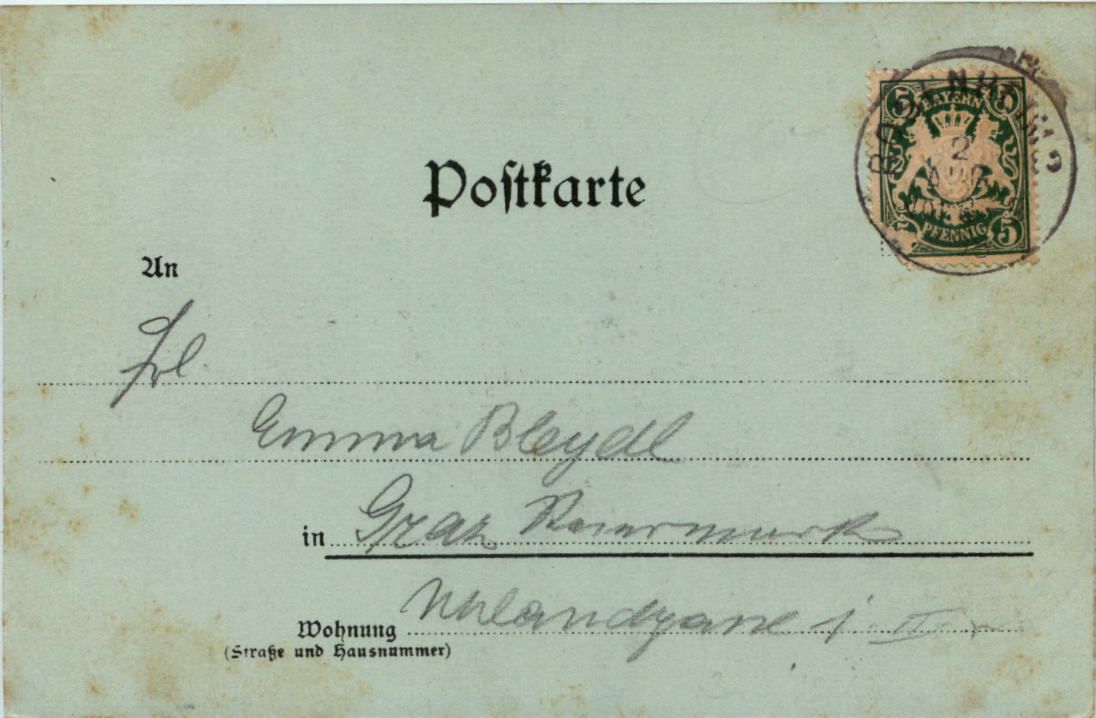 Postkarte
ROSENHEIM 2
2
5 BAYERN 5
PFENNIG 5
An
Frl.
Emma Bleydl
in Graz Steiermark
Uhlandgasse 1 II
Wohnung
(Straße und Hausnummer)